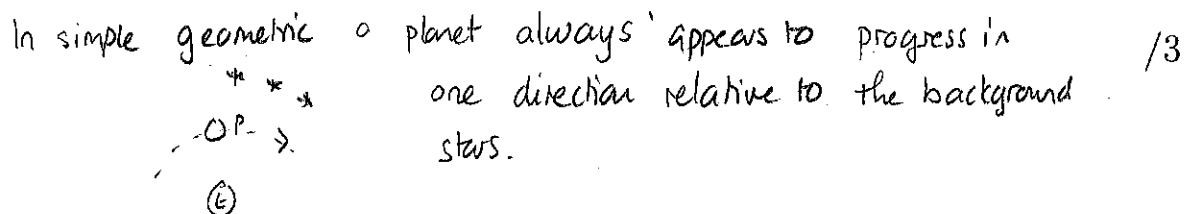 In simple geometric a planet always appears to progress in /3
one direction relative to the background
stars.
P
E